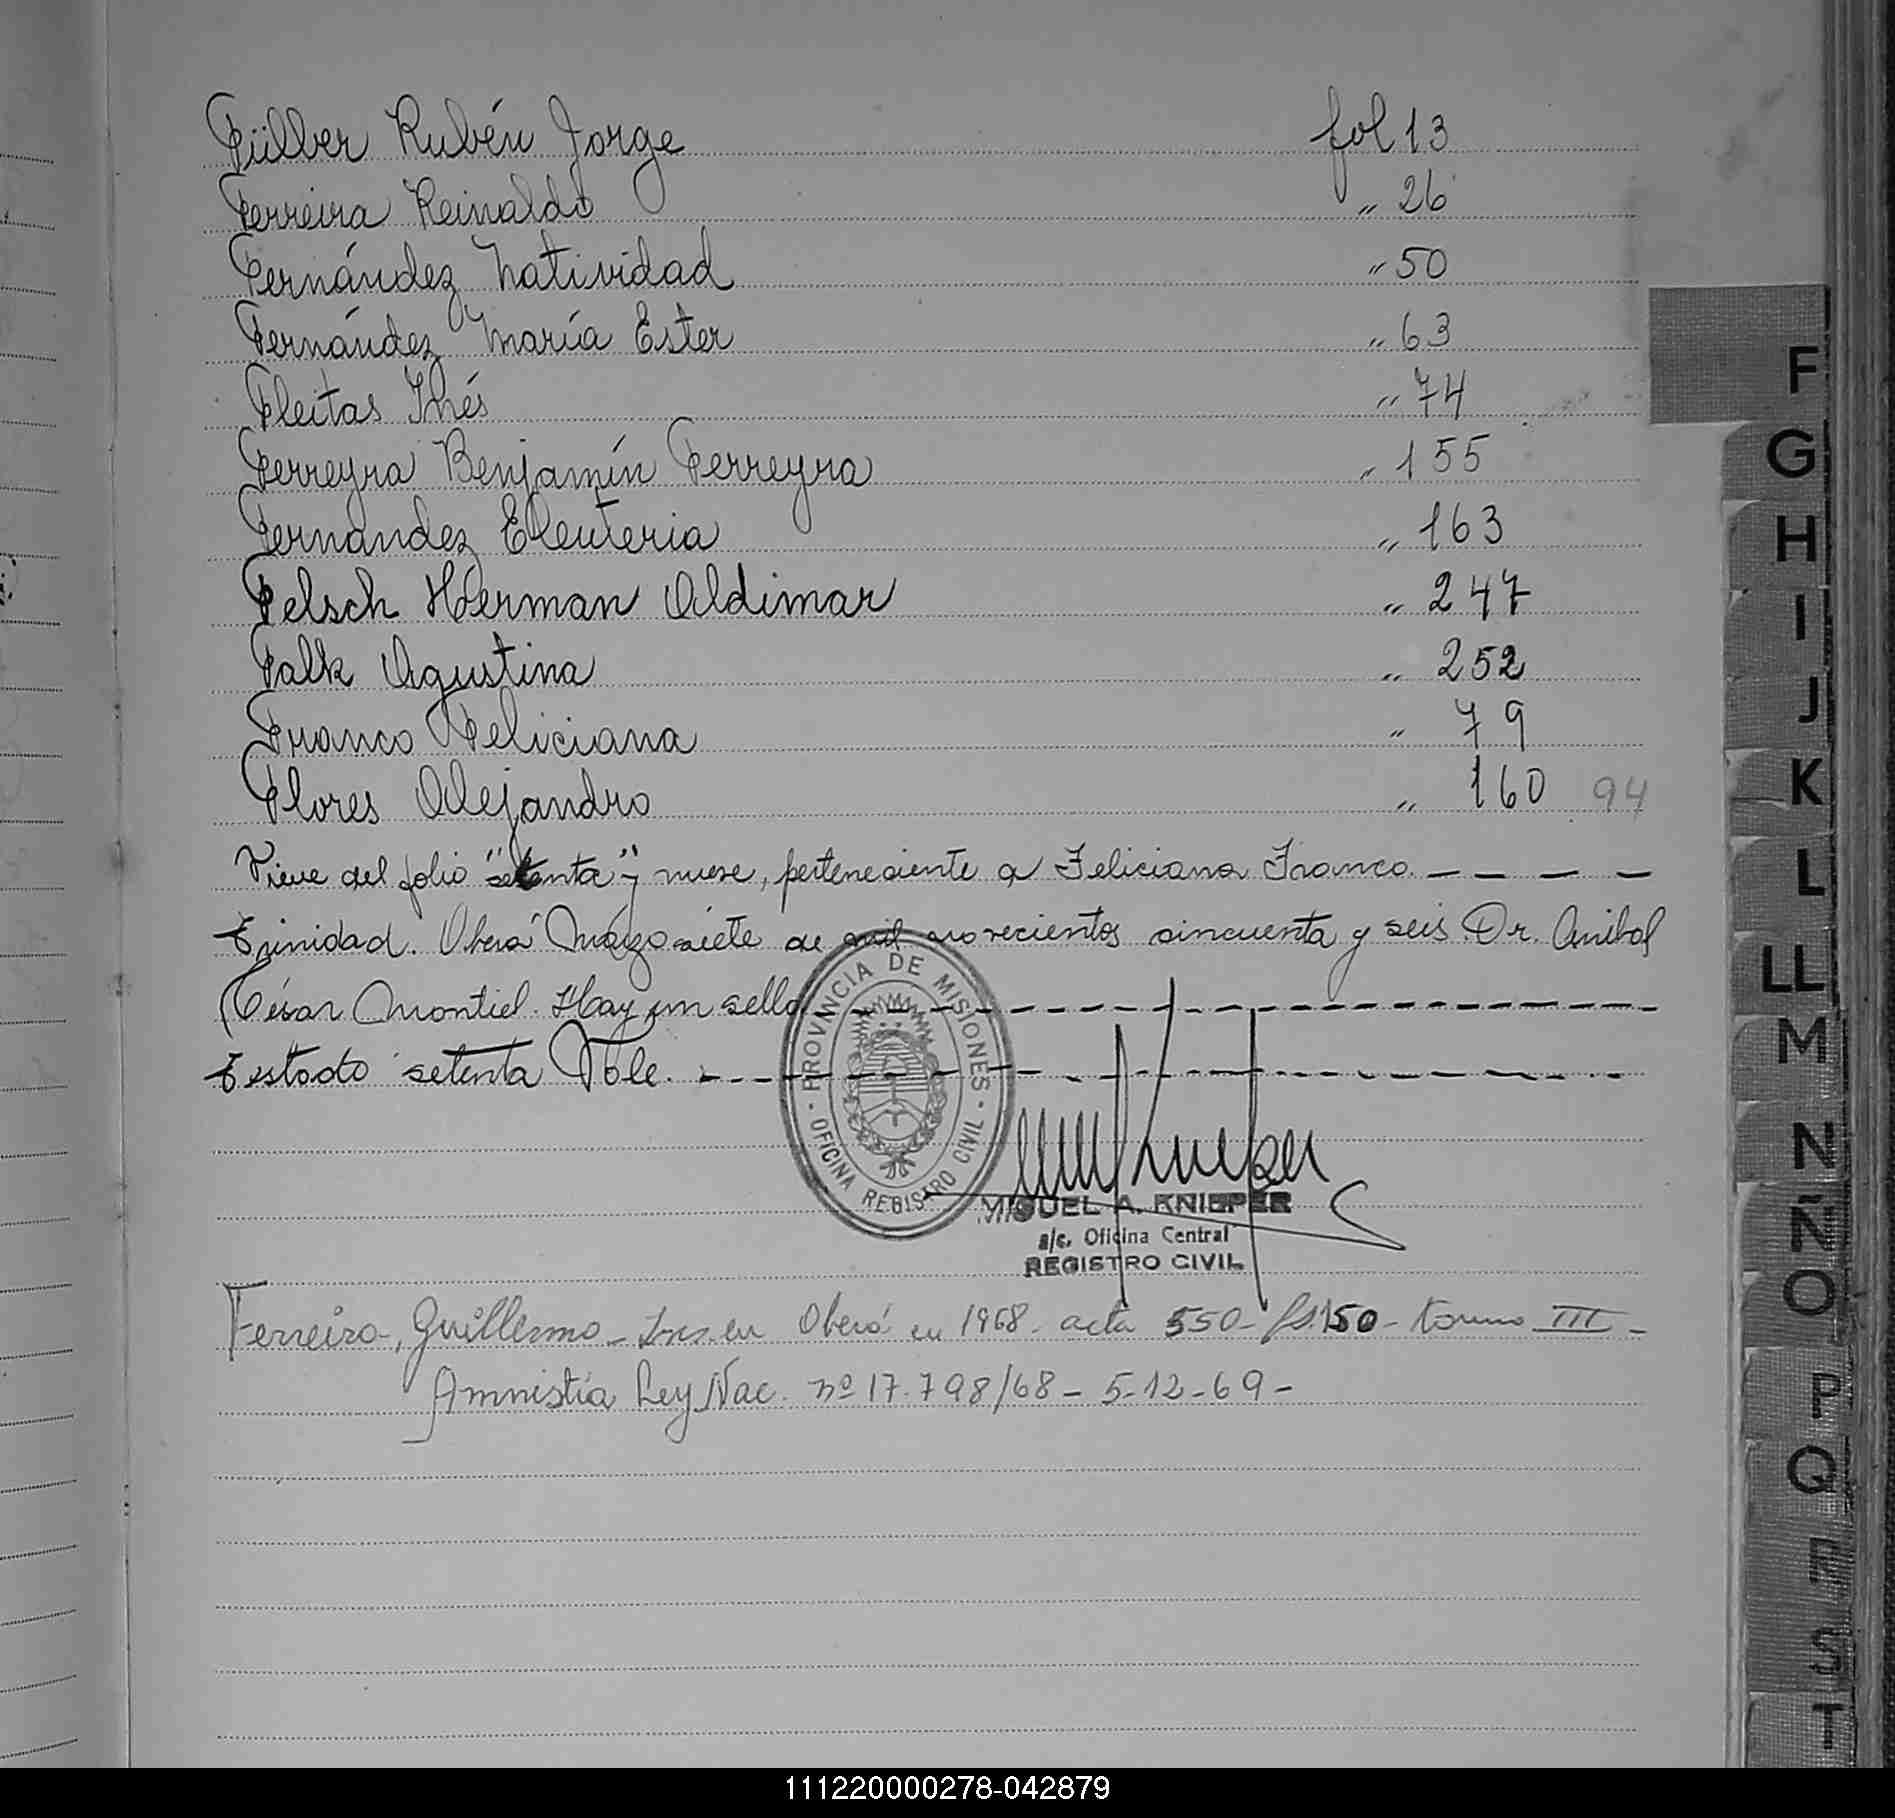 Fülber Rubén Jorge fol 13
Ferreira Reinaldo " 26
Fernández Natividad " 50
Fernández María Ester " 63
Fleitas Inés " 74
Ferreyra Benjamín Ferreyra " 155
Fernández Eleuteria " 163
Felsch Herman Aldimar " 247
Falk Agustina " 252
Franco Feliciana " 79
Flores Alejandro " 160 94
Viene del folio "setenta" y nueve, perteneciente a Feliciana Franco. — — — —
Trinidad. Oberá Marzo siete de mil novecientos cincuenta y seis. Dr. Anibal
César Montiel. Hay un sello
Testado setenta Vole.
PROVINCIA DE MISIONES
OFICINA REGISTRO CIVIL
MIGUEL A. KNIEPER
a/c. Oficina Central
REGISTRO CIVIL
Ferreira, Guillermo - Ins. en Oberá en 1968 - acta 550 - fs. 150 - tomo III -
Amnistía Ley Nac. nº 17.798/68 - 5-12-69 -
F
G
H
I
J
K
L
LL
M
N
Ñ
O
P
Q
R
S
T
111220000278-042879